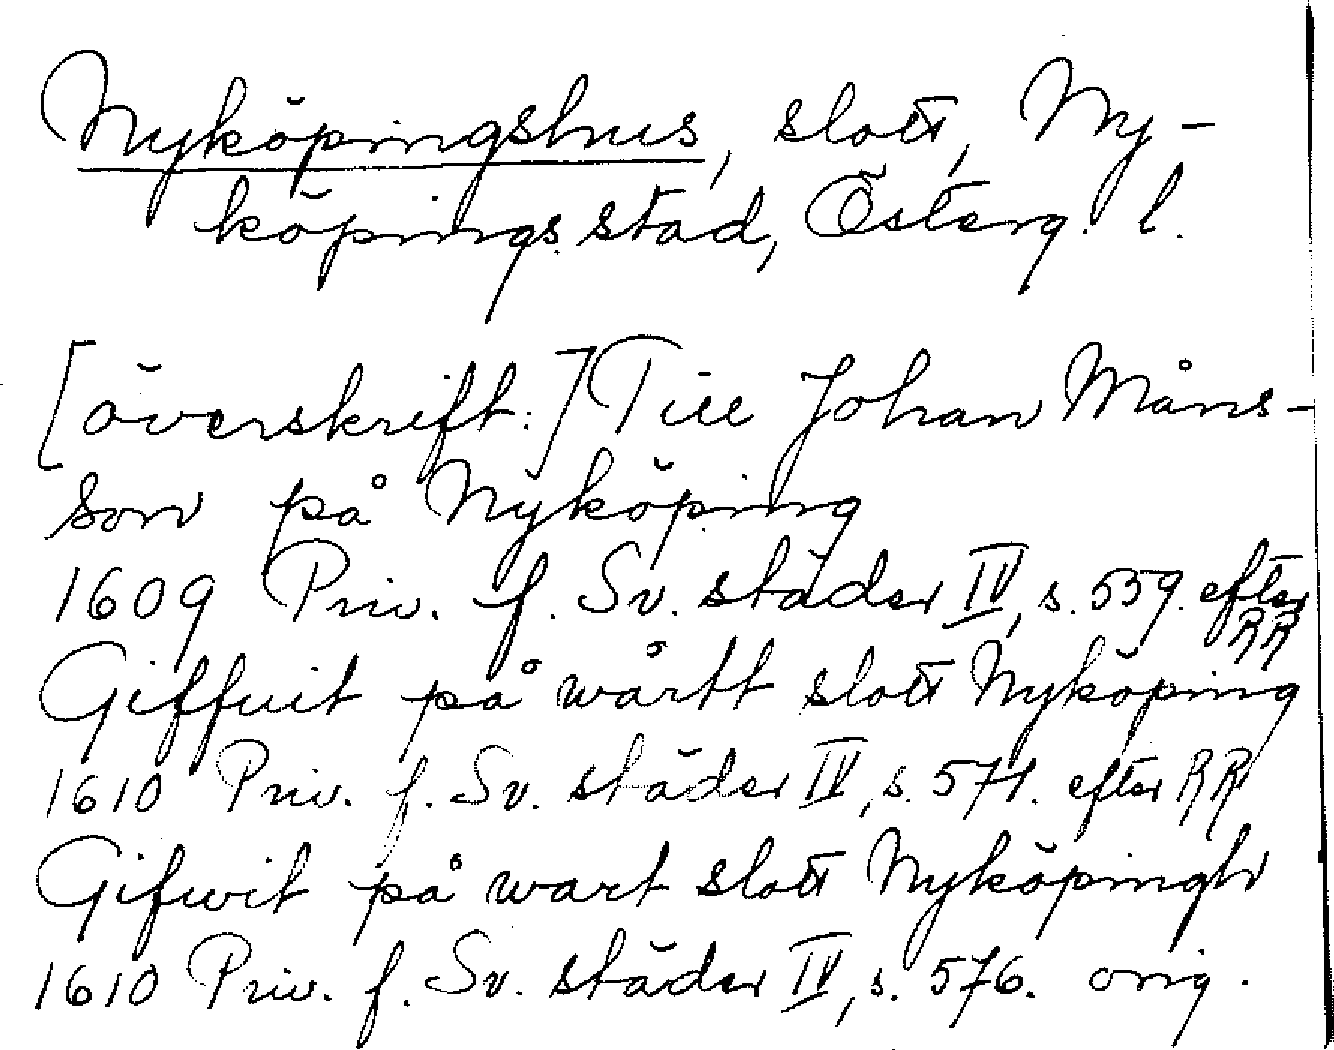 Nyköpingshus, slott, Ny-
köpings stad, Österg. l.
[överskrift:] Till Johan Måns-
son på Nyköping
1609 Priv. f. Sv. städer IV, s. 559. efter RR
Giffuit på wårtt slott Nyköping
1610 Priv. f. Sv. städer IV, s. 571. efter RR
Gifwit på wart slott Nyköpingh
1610 Priv. f. Sv. städer IV, s. 576. orig.